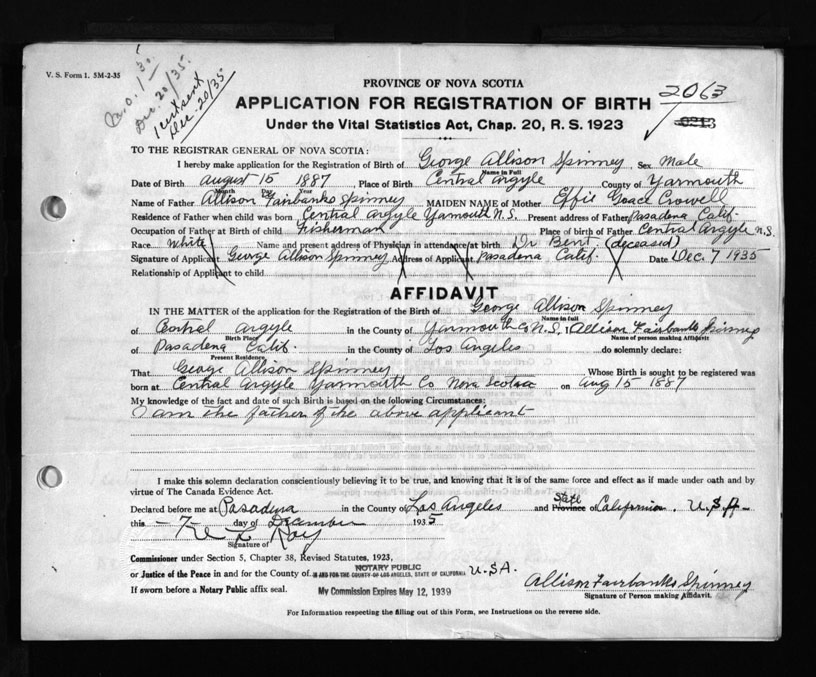 V. S. Form 1. 5M-2-35
Dec. 20/35
Dec. 20/35
PROVINCE OF NOVA SCOTIA
APPLICATION FOR REGISTRATION OF BIRTH
2063
0213
Under the Vital Statistics Act, Chap. 20, R. S. 1923
TO THE REGISTRAR GENERAL OF NOVA SCOTIA:
I hereby make application for the Registration of Birth of George Allison Spinney Sex Male
Name in Full
Date of Birth August 15 1887 Place of Birth Central Argyle County of Yarmouth
Month Day Year
Name of Father Allison Fairbanks Spinney MAIDEN NAME of Mother Effie Grace Crowell
Residence of Father when child was born Central Argyle Yarmouth N.S. Present address of Father Pasadena Calif.
Occupation of Father at Birth of child Fisherman Place of birth of Father Central Argyle N.S.
Race White Name and present address of Physician in attendance at birth Dr Bent (deceased)
Signature of Applicant George Allison Spinney Address of Applicant Pasadena Calif. Date Dec. 7 1935
Relationship of Applicant to child
AFFIDAVIT
IN THE MATTER of the application for the Registration of the Birth of George Allison Spinney
Name in full
of Central Argyle in the County of Yarmouth Co N.S. I Allison Fairbanks Spinney
Birth Place Name of person making Affidavit
of Pasadena Calif. in the County of Los Angeles do solemnly declare:
Present Residence
That George Allison Spinney Whose Birth is sought to be registered was
born at Central Argyle Yarmouth Co Nova Scotia on Aug 15 1887
My knowledge of the fact and date of such Birth is based on the following Circumstances:
I am the father of the above applicant
I make this solemn declaration conscientiously believing it to be true, and knowing that it is of the same force and effect as if made under oath and by
virtue of The Canada Evidence Act.
Declared before me at Pasadena in the County of Los Angeles and Province State of California. U.S.A.
this 7 day of December 1935
Signature of
Commissioner under Section 5, Chapter 38, Revised Statutes, 1923,
NOTARY PUBLIC
or Justice of the Peace in and for the County of IN AND FOR THE COUNTY OF LOS ANGELES, STATE OF CALIFORNIA U.S.A.
If sworn before a Notary Public affix seal. My Commission Expires May 12, 1939
Allison Fairbanks Spinney
Signature of Person making Affidavit.
For Information respecting the filling out of this Form, see Instructions on the reverse side.